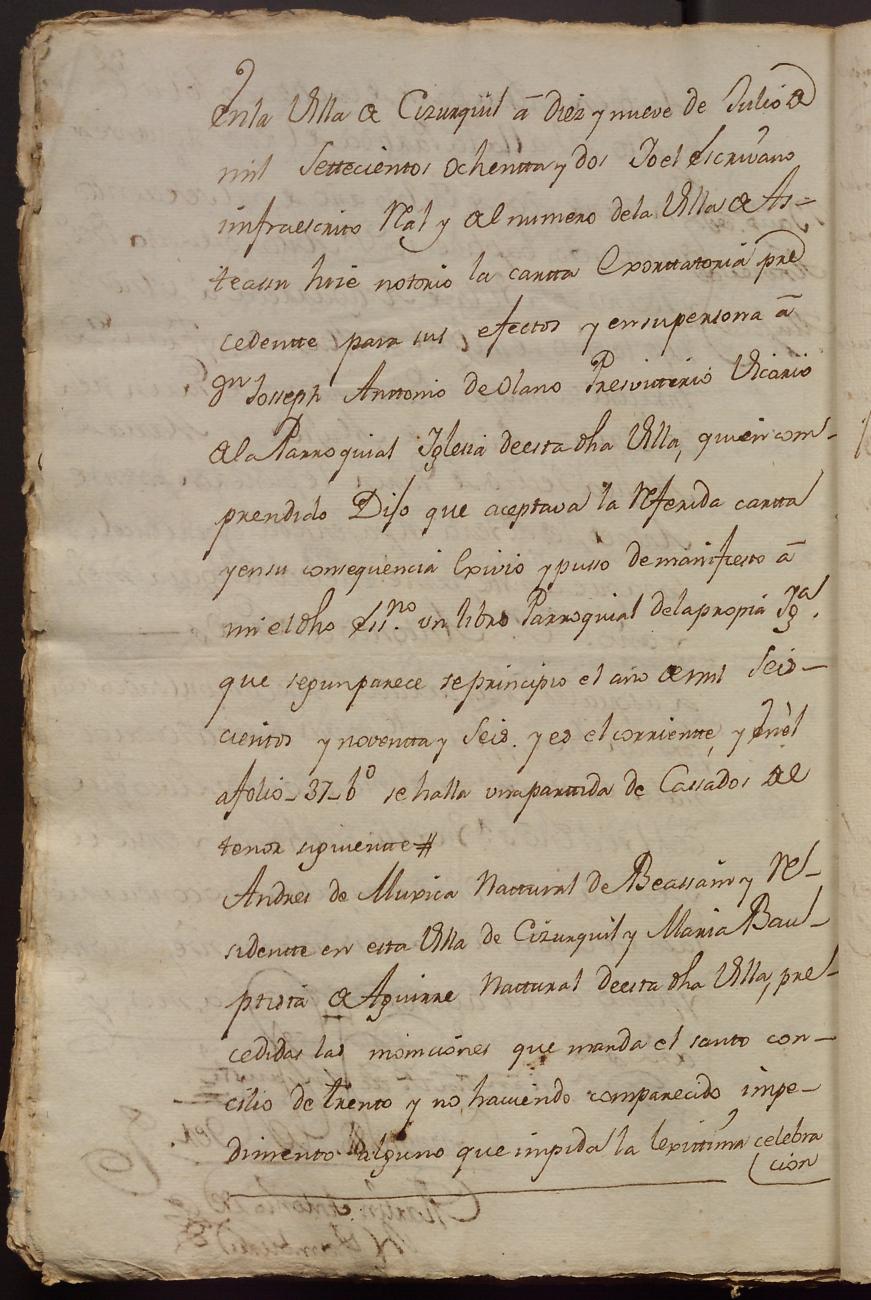 En la Villa de Cizurquil â diez y nueve de Julio de
mil Settecientos ochentta y dos Yo el escrivano
infraescrito Rl. y del numero de la Villa de As-
teasu hize notorio la cartta Exorttatoria pre
cedentte para sus efectos y en su persona â
Dn. Josseph Anttonio de Olano Presvitterio Vicario
de la Parroquial Iglesia de esta dha Villa, quien com-
prendido Dijo que aceptava la referida cartta
y en su consequencia Exivio y pusso de manifiesto â
mi el dho essno. un libro Parroquial de la propia Yga.
que segun parece se principio el año de mil Seis-
cientos y noventta y Seis. y es el corriente, y en èl
a folio - 37 - bo se halla una parttida de Cassados del
tenor siguientte #
Andres de Muxica Nattural de Beassain y Re-
sidentte en esta Villa de Cizurquil y Maria Bau-
ptista de Aguirre Nattural de esta dha Villa, pre-
cedidas las moniciones que manda el santo con-
cilio de trento y no haviendo comparecido impe-
dimento alguno que impida la lexittima celebra
cion